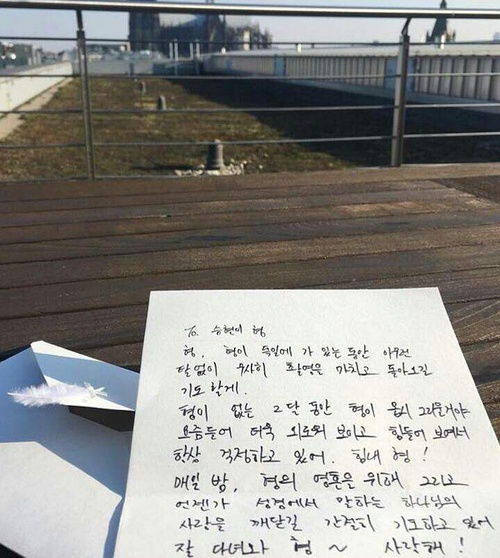 To. 승현이 형
형, 형이 독일에 가 있는 동안 아무런
탈없이 무사히 촬영을 마치고 돌아오길
기도 할게.
형이 없는 2달 동안 형이 몹시 그리울거야
요즘들어 더욱 외로워 보이고 힘들어 보여서
항상 걱정하고 있어. 힘내 형!
매일 밤, 형의 영혼을 위해 그리고
언젠가 성경에서 말하는 하나님의
사랑을 깨닫길 간절히 기도하고 있어
잘 다녀와 형 ~ 사랑해!